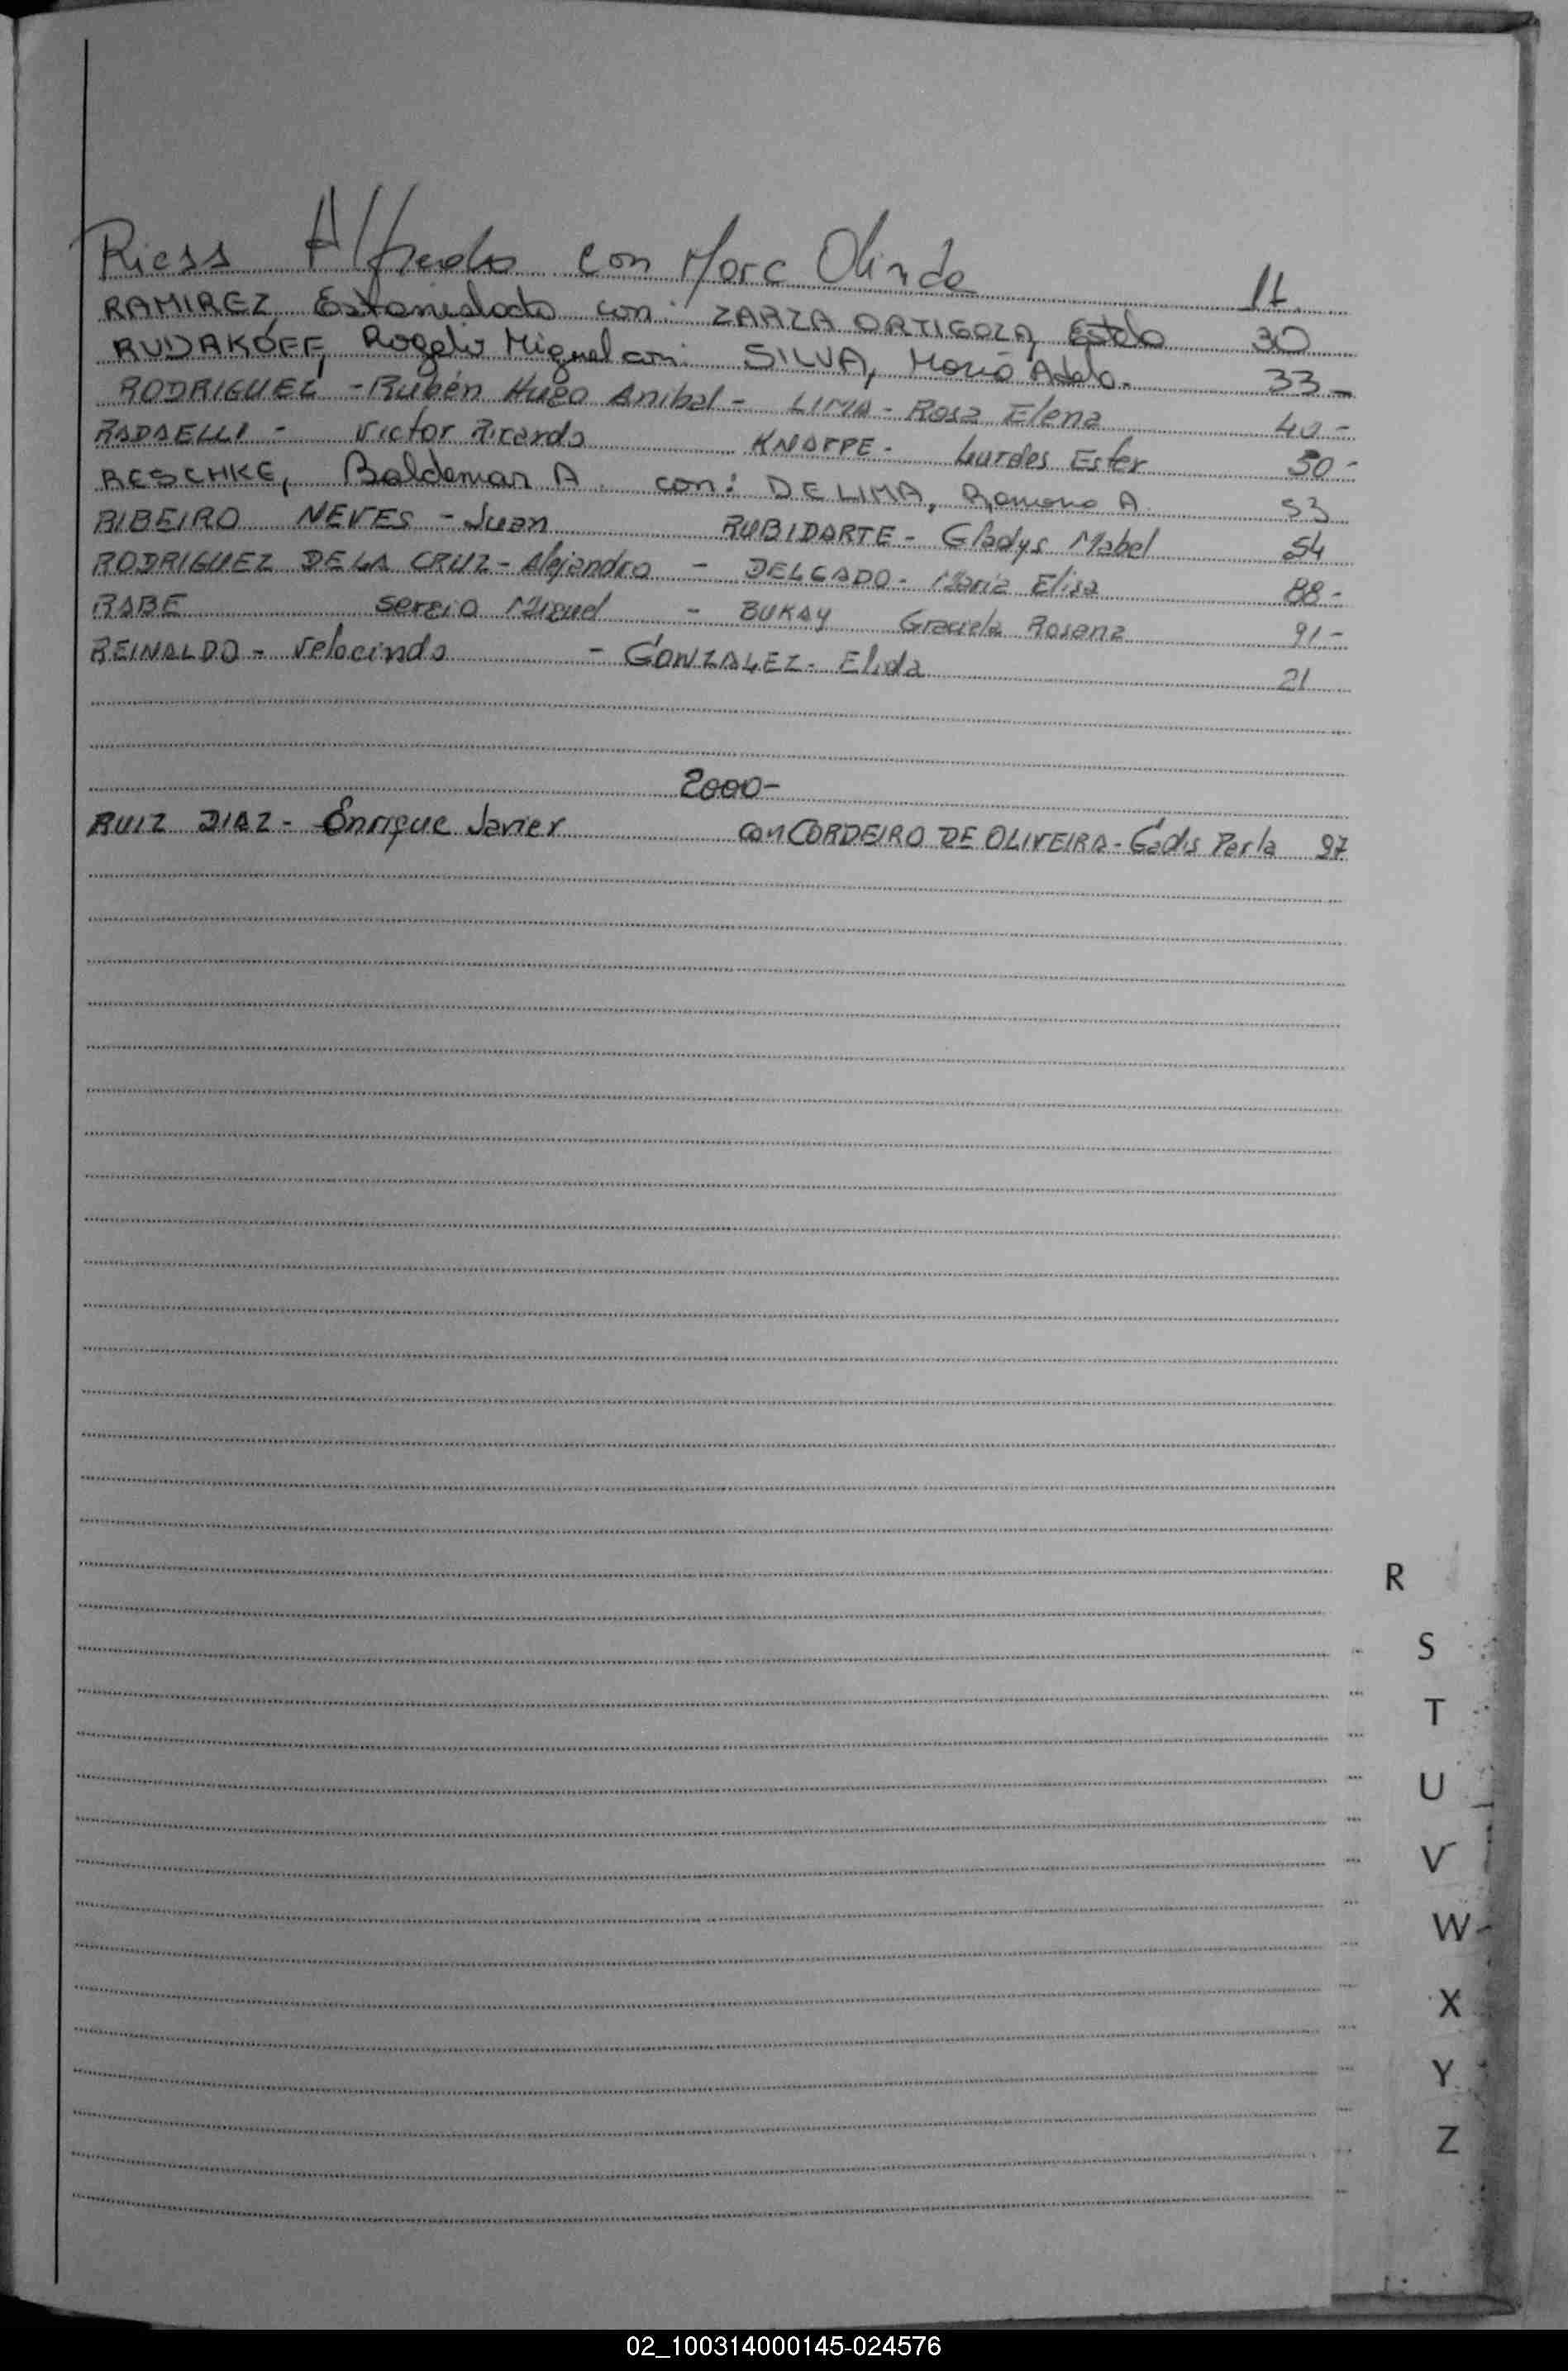 Riess Alfredo con Morc Olinda 11.
RAMIREZ, Estanislado con: ZARZA ORTIGOZA, Estela 30
RUDAKOFF, Rogelio Miguel con: SILVA, María Adela. 33-
RODRIGUEZ - Rubén Hugo Anibal - LIMA - Rosa Elena 40-
RADAELLI - Victor Ricardo KNOPPE - Lurdes Ester 50-
RESCHKE, Baldemar A. con: DE LIMA, Ramona A. 53
RIBEIRO NEVES - Juan RUBIDARTE - Gladys Mabel 54
RODRIGUEZ DE LA CRUZ - Alejandro - DELGADO - María Elisa 88-
RABE Sergio Miguel - BUKAY Graciela Rosana 91-
REINALDO - Velocindo - GONZALEZ - Elida 21
2000-
RUIZ DIAZ - Enrique Javier con CORDEIRO DE OLIVEIRA - Gadis Perla 97
R
S
T
U
V
W
X
Y
Z
02_100314000145-024576